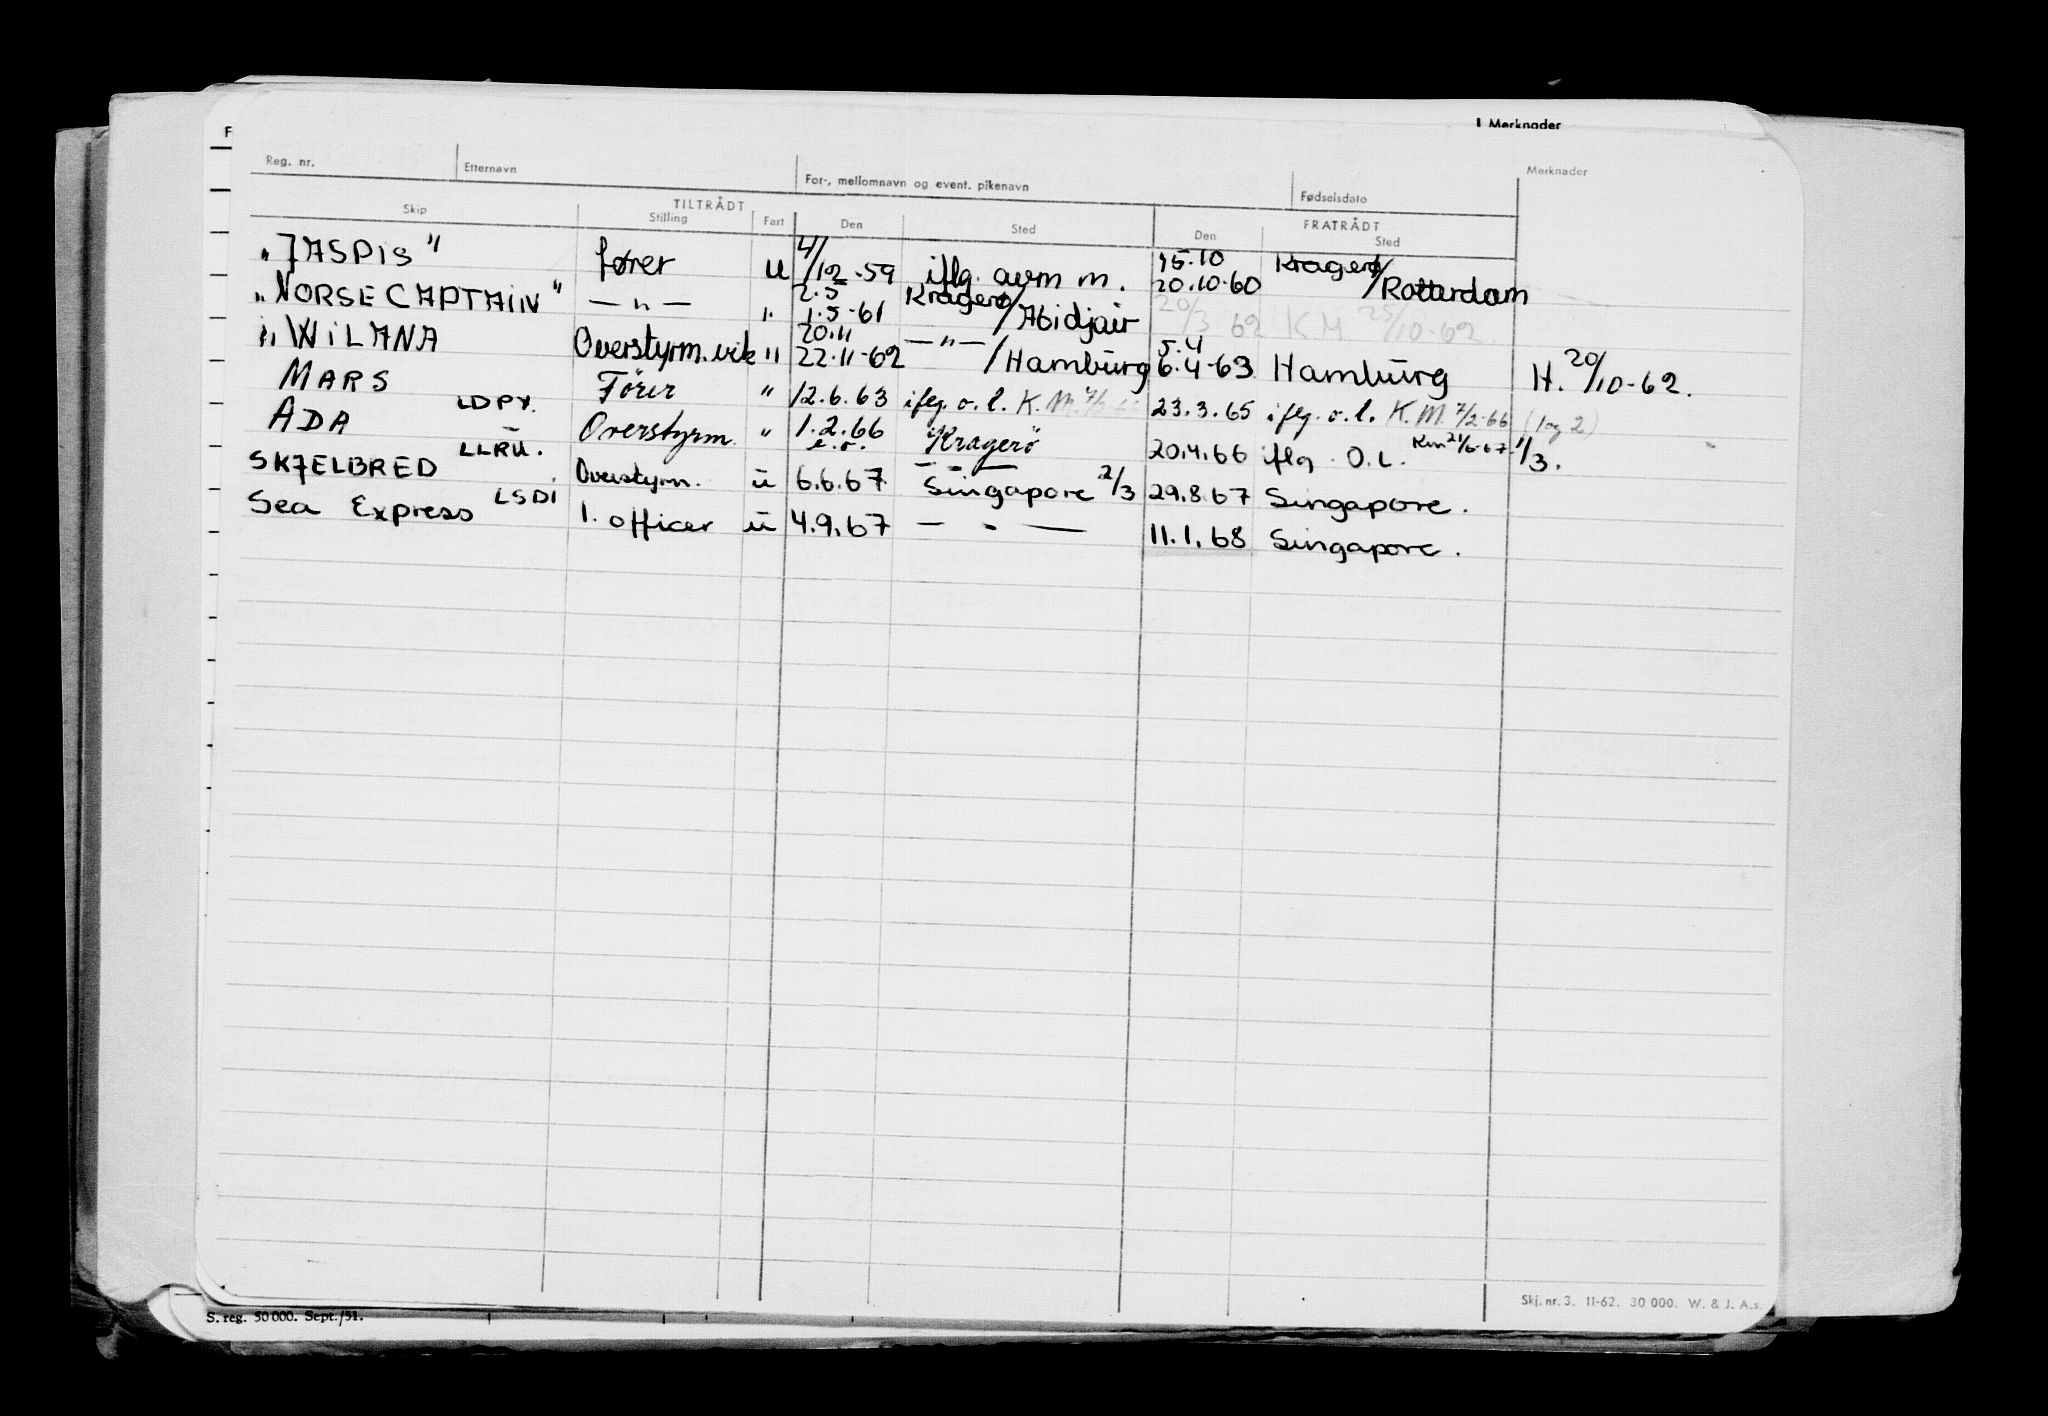 F
Merknader
Reg. nr. Etternavn For-, mellomnavn og event. pikenavn Fødselsdato Merknader
TILTRÅDT FRATRÅDT
Skip Stilling Fart Den Sted Den Sted
"JASPIS" fører u 4/12-59 iflg. avm m. 15.10 20.10-60 Kragerø/Rotterdam
"NORSE CAPTAIN" — " — " 2.5 1.5-61 Kragerø/Abidjair 20/3 62 KM 25/10-62.
"WILANA Overstyrm. vik " 20.11 22.11-62 — " — /Hamburg 5.4 6.4-63 Hamburg H. 20/10-62.
MARS LDPY. Förer " 12.6.63 iflg. o.l. K.M. 7/2-66 23.3.65 iflg. o.l. K.M. 7/2-66 (log 2)
ADA LLRU. Overstyrm. " 1.2.66 e.o. Kragerö 20.4.66 iflg. O.L. Km 21/6-67 1/3.
SKJELBRED LSDI Overstyrm. u 6.6.67 Singapore 2/3 29.8.67 Singapore.
Sea Express 1. officer u 4.9.67 — " — 11.1.68 Singapore.
Skj. nr. 3. 11-62. 30 000. W. & J. A.s.
S. reg. 50 000. Sept./51.